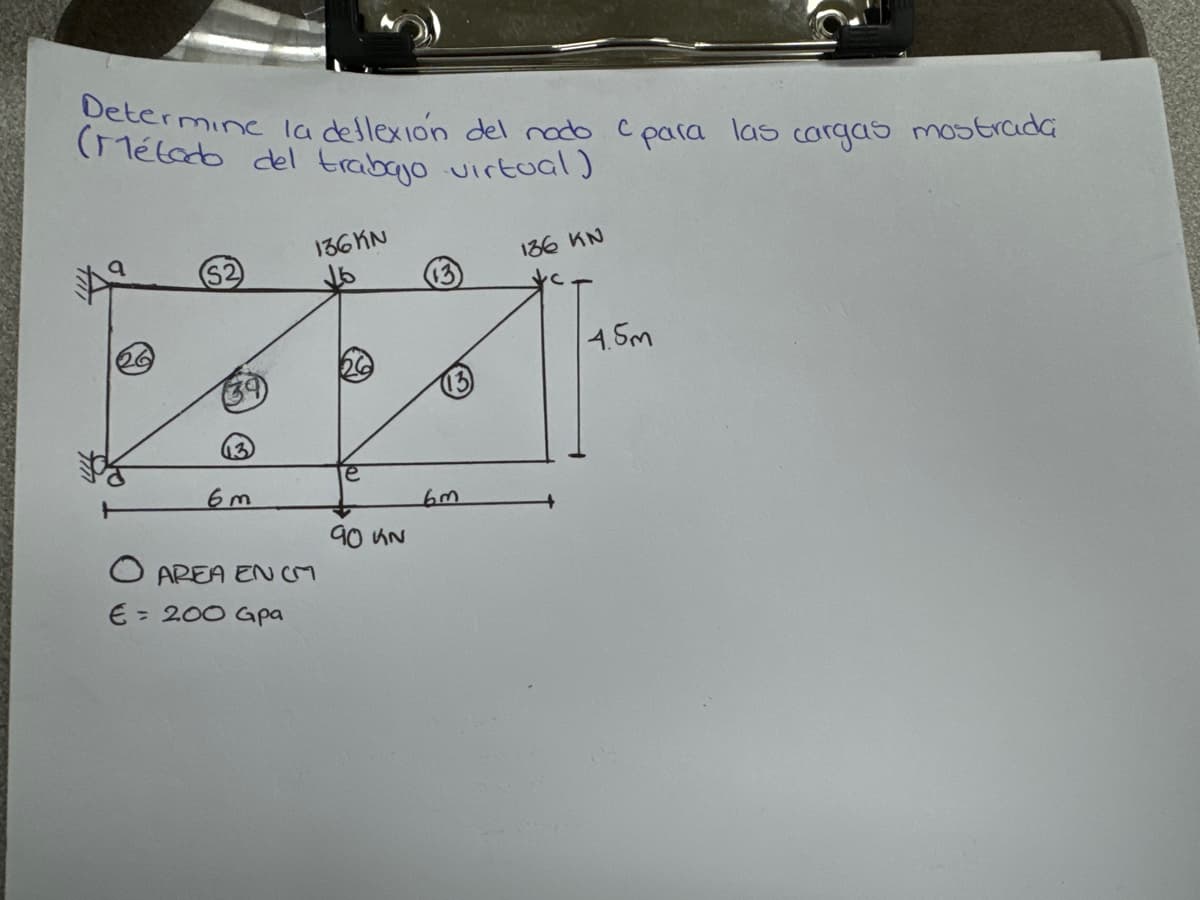 Determine la deflexión del nodo c para las cargas mostrada
(Método del trabajo virtual)
136KN
136 KN
a
52
b
13
c
4.5m
26
39
26
13
13
d
e
6 m
6m
90 KN
O AREA EN CM
E = 200 Gpa